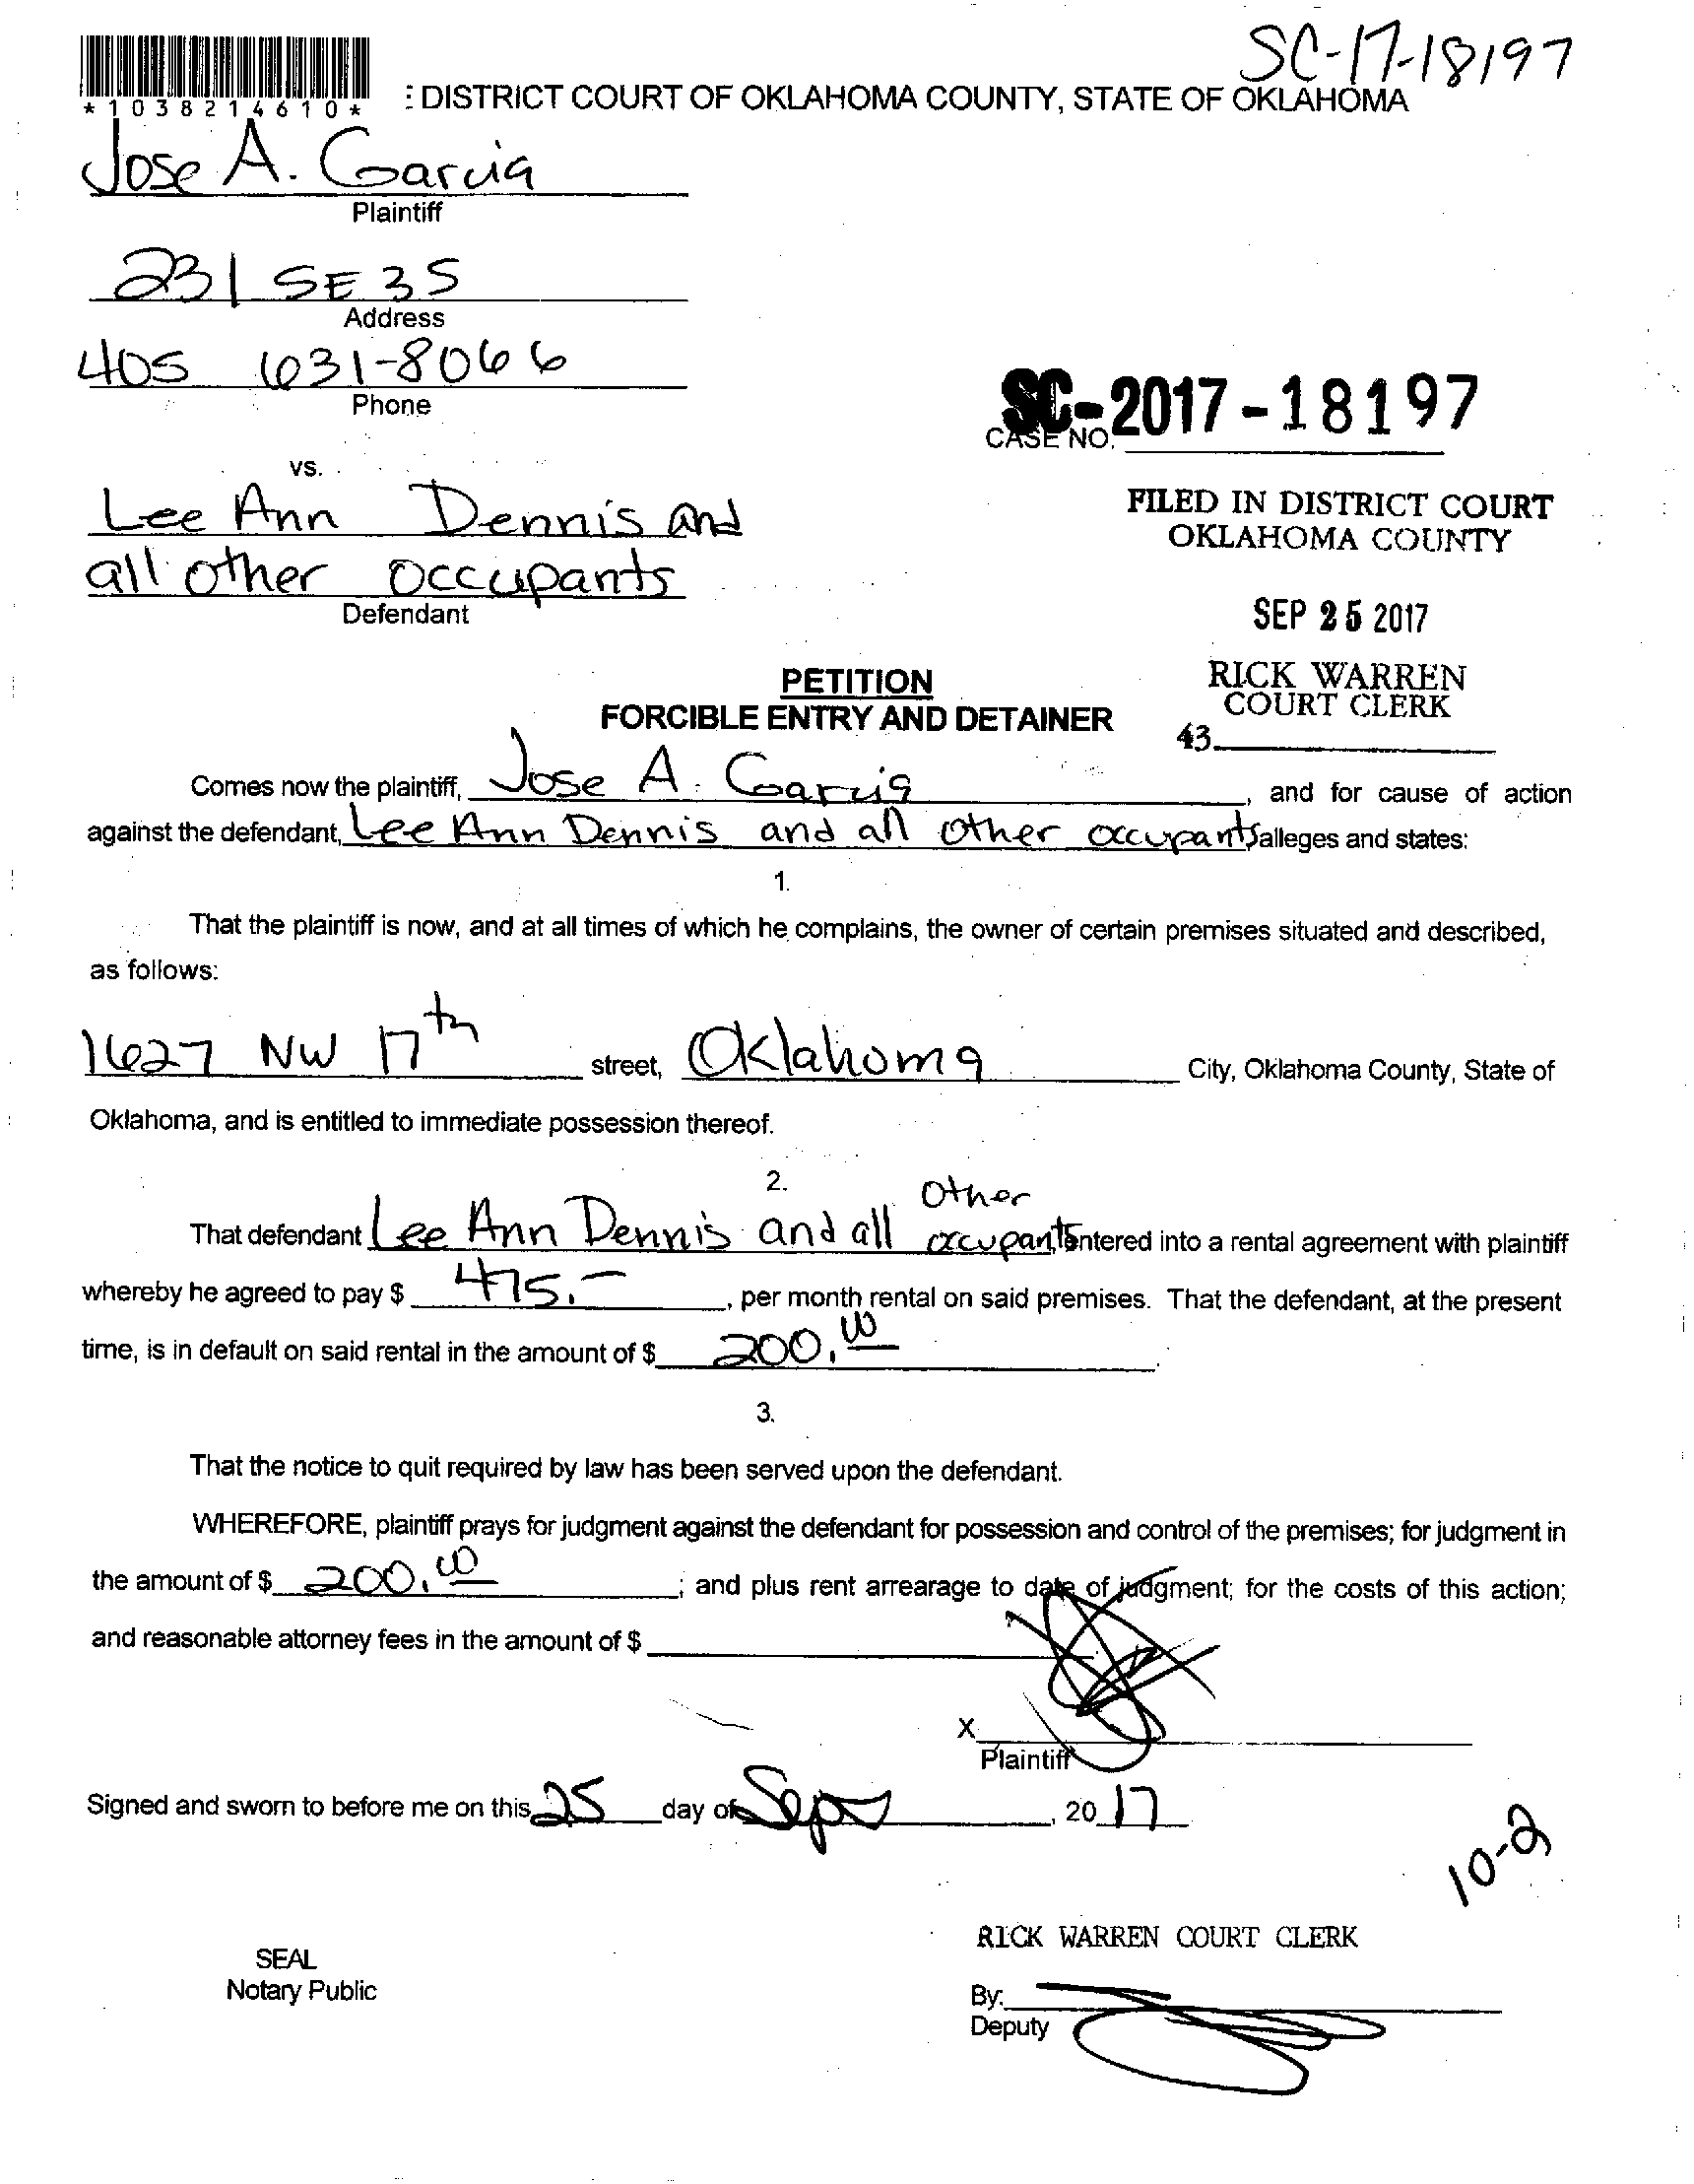 SC-17-18197
*1038214610*
: DISTRICT COURT OF OKLAHOMA COUNTY, STATE OF OKLAHOMA
Jose A. Garcia
Plaintiff
231 SE 35
Address
405 631-8066
Phone
SC-2017-18197
CASE NO.
vs.
Lee Ann Dennis and
all other occupants
Defendant
FILED IN DISTRICT COURT
OKLAHOMA COUNTY
SEP 25 2017
RICK WARREN
COURT CLERK
43
PETITION
FORCIBLE ENTRY AND DETAINER
Comes now the plaintiff, Jose A. Garcia, and for cause of action
against the defendant, Lee Ann Dennis and all other occupants alleges and states:
1.
That the plaintiff is now, and at all times of which he complains, the owner of certain premises situated and described,
as follows:
1627 NW 17th street, Oklahoma City, Oklahoma County, State of
Oklahoma, and is entitled to immediate possession thereof.
2.
That defendant Lee Ann Dennis and all other occupants entered into a rental agreement with plaintiff
whereby he agreed to pay $ 475.-, per month rental on said premises. That the defendant, at the present
time, is in default on said rental in the amount of $ 200.00.
3.
That the notice to quit required by law has been served upon the defendant.
WHEREFORE, plaintiff prays for judgment against the defendant for possession and control of the premises; for judgment in
the amount of $ 200.00; and plus rent arrearage to date of judgment; for the costs of this action;
and reasonable attorney fees in the amount of $
X
Plaintiff
Signed and sworn to before me on this 25 day of Sept, 20 17
10-2
RICK WARREN COURT CLERK
SEAL
Notary Public
By:
Deputy